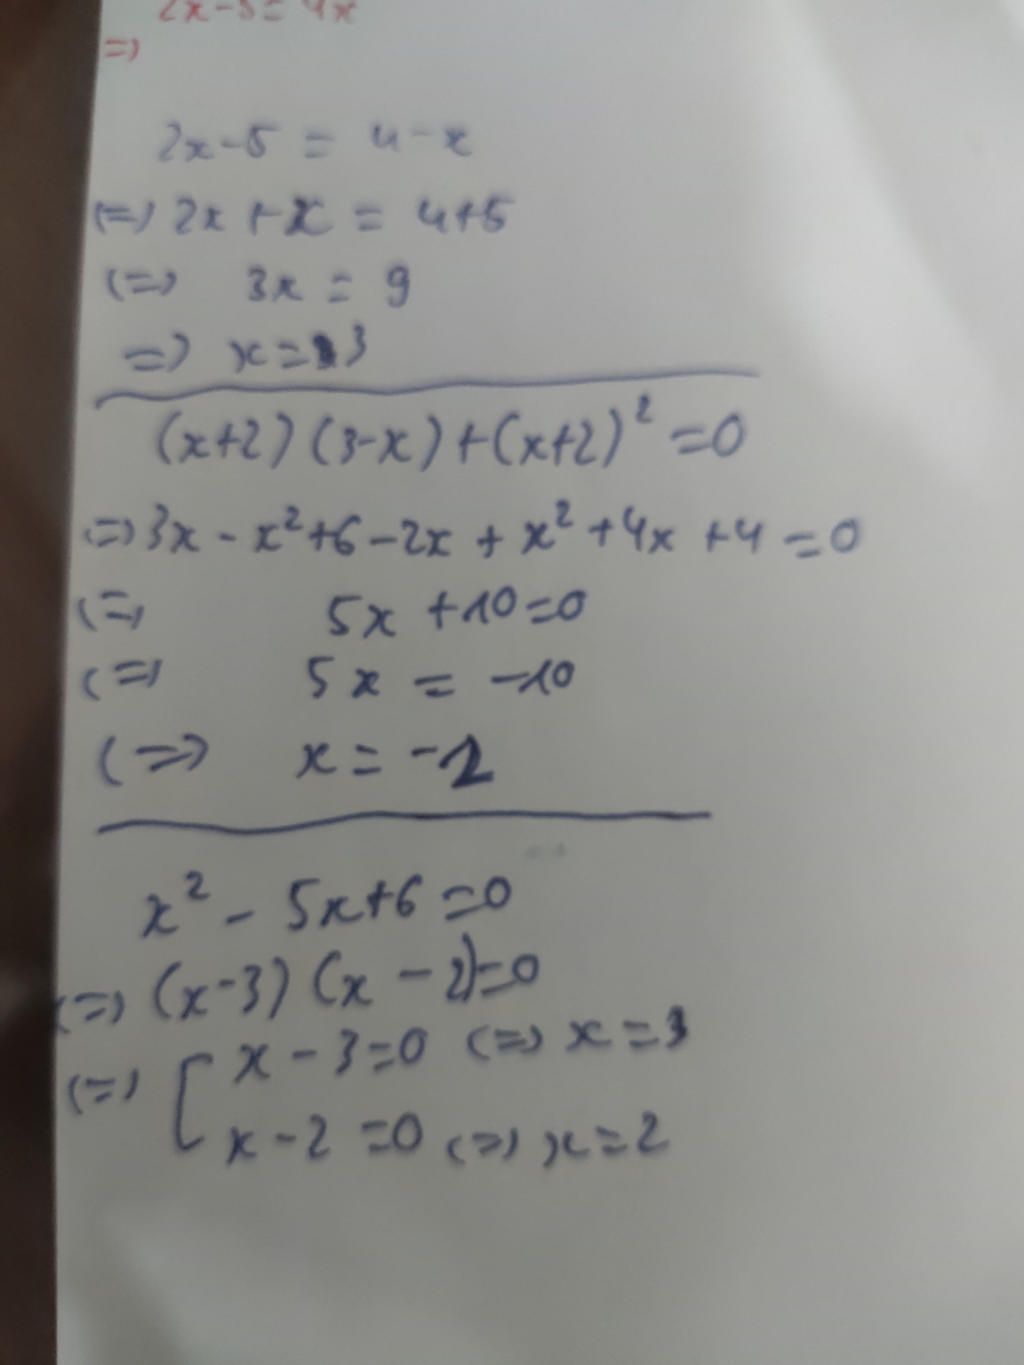 2x-5=4x
=>
2x-5 = 4-x
(=) 2x+x = 4+5
(=> 3x = 9
=> x=3
(x+2)(3-x)+(x+2)²=0
=> 3x - x²+6-2x + x²+4x+4=0
(=> 5x+10=0
(=> 5x = -10
(=> x=-2
x² - 5x+6=0
(=> (x-3)(x-2)=0
(=> [ x-3=0 (=> x=3
x-2=0 (=> x=2